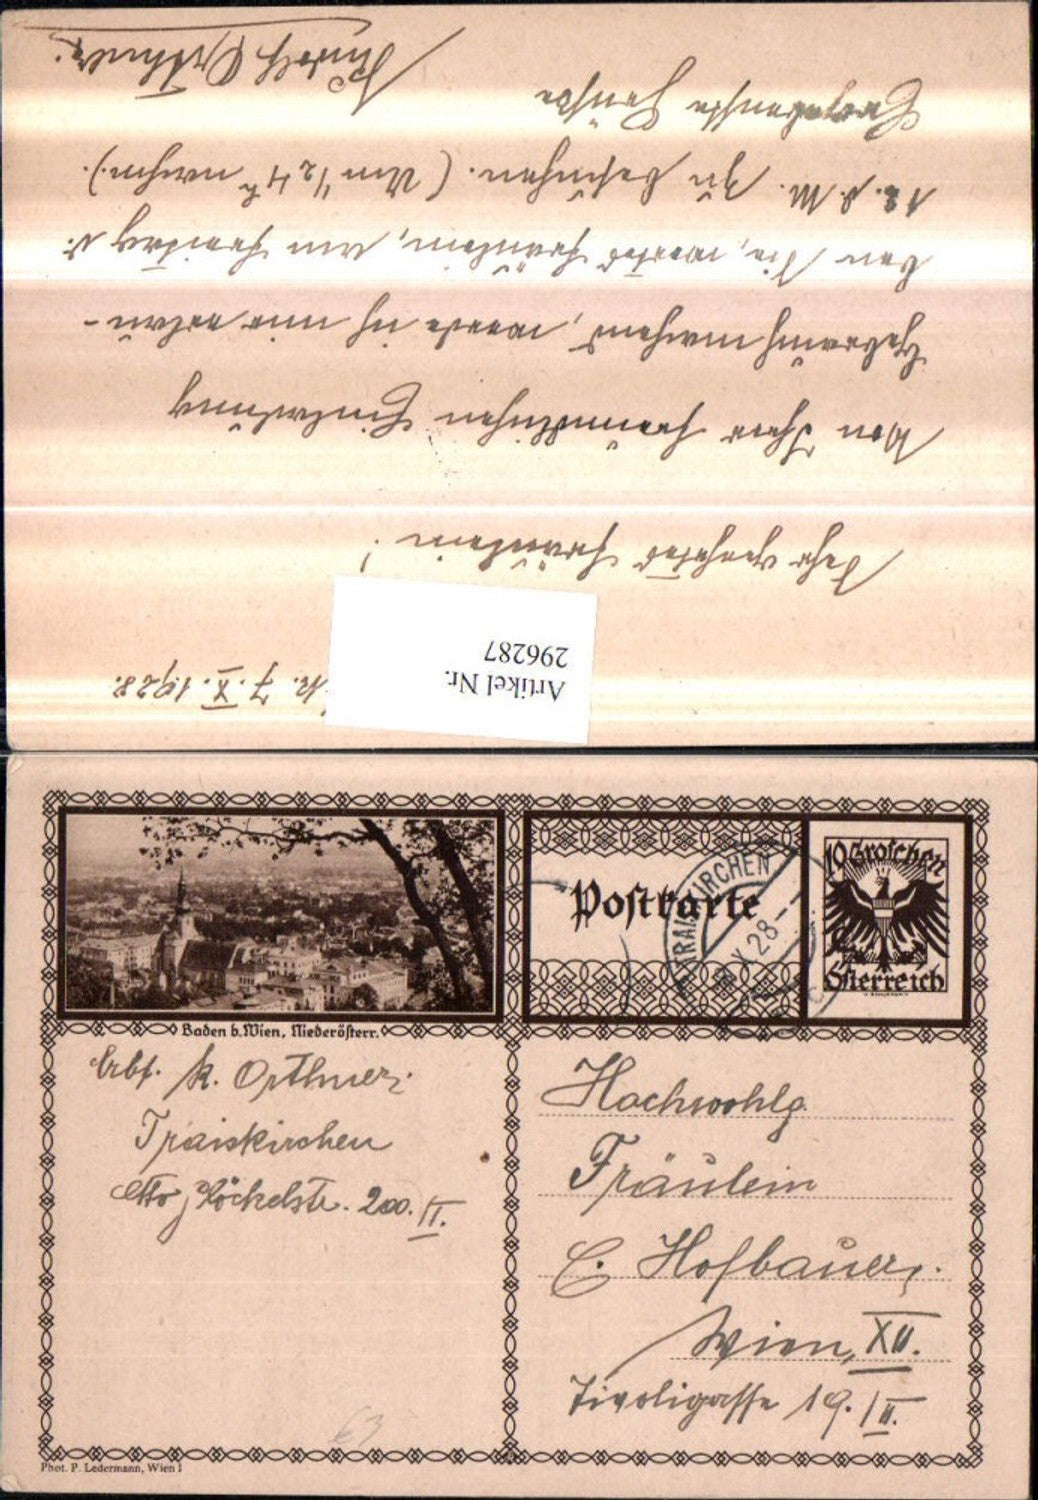 Tr. 7. X. 1928.
Sehr geehrtes Fräulein!
Von Ihrer freundlichen Einladung
Gebrauch machend, werde ich mir erlau-
ben Sie, wertes Fräulein, am Freitag d.
12. d. M. zu besuchen. (Um 1/2 4 h nachm.).
Ergebenste Grüße
Rudolf Orthner
Artikel Nr.
296287
Baden b. Wien, Niederösterr.
Postkarte
10 Groschen
Österreich
TRAISKIRCHEN
X 28
Absf. R. Orthner
Traiskirchen
Otto Glöckelstr. 200. II.
Hochwohlg.
Fräulein
C. Hofbauer,
Wien, XII.
Tivoligasse 19. / II.
63
Phot. P. Ledermann, Wien I